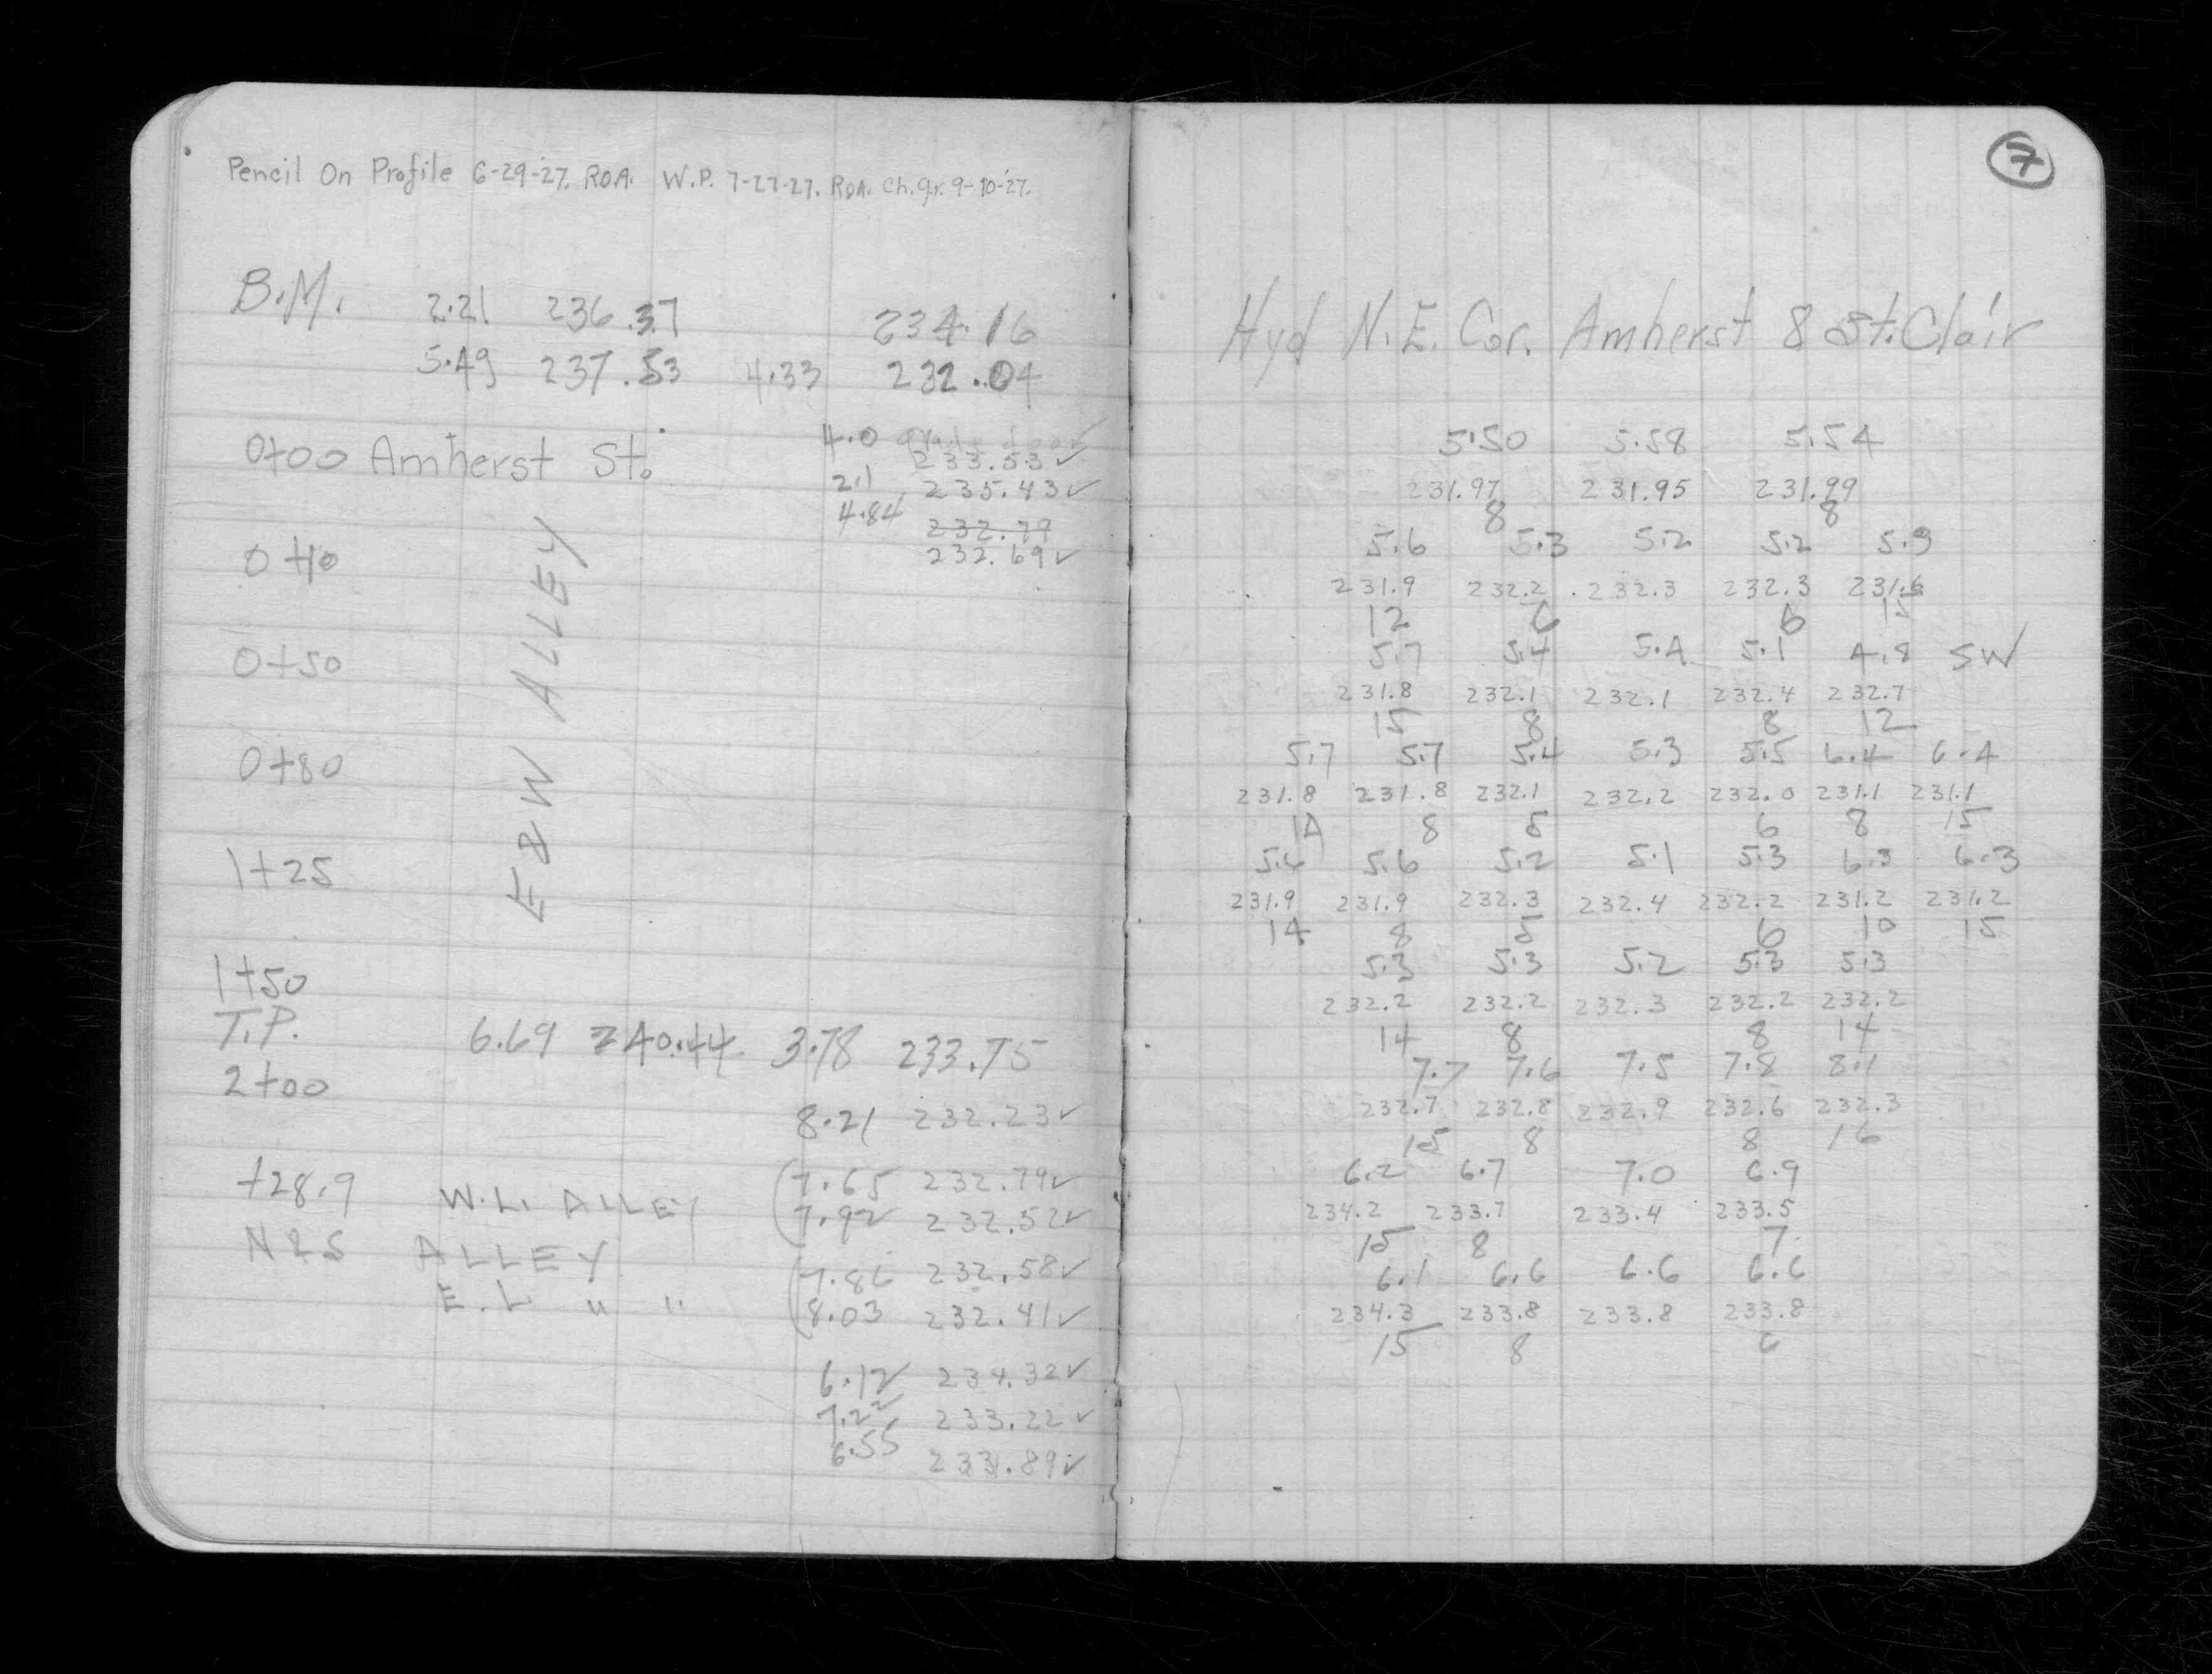 Pencil On Profile 6-29-27. ROA. W.P. 7-27-27. ROA. Ch.gr. 9-10-27.
B.M. 2.21 236.37 234.16
5.49 237.53 4.33 232.04
0+00 Amherst St. 4.0 233.53✓
2.1 235.43✓
4.84 232.79
232.69✓
0+10
0+50
0+80
1+25
E&W ALLEY
1+50
T.P. 6.69 240.44 3.78 233.75
2+00
8.21 232.23✓
+28.9 W.L. ALLEY 7.65 232.79✓
7.92 232.52✓
N&S ALLEY 7.86 232.58✓
E.L " " 8.03 232.41✓
6.12 234.32✓
7.22 233.22✓
6.55 233.89✓
7
Hyd N.E. Cor. Amherst & St. Clair
5.50 5.58 5.54
231.97 231.95 231.99
8 8
5.6 5.3 5.2 5.2 5.9
231.9 232.2 232.3 232.3 231.6
12 6 6 15
5.7 5.4 5.4 5.1 4.8 SW
231.8 232.1 232.1 232.4 232.7
15 8 8 12
5.7 5.7 5.4 5.3 5.5 6.4 6.4
231.8 231.8 232.1 232.2 232.0 231.1 231.1
14 8 5 6 8 15
5.6 5.6 5.2 5.1 5.3 6.3 6.3
231.9 231.9 232.3 232.4 232.2 231.2 231.2
14 8 5 6 10 15
5.3 5.3 5.2 5.3 5.3
232.2 232.2 232.3 232.2 232.2
14 8 8 14
7.7 7.6 7.5 7.8 8.1
232.7 232.8 232.9 232.6 232.3
15 8 8 16
6.2 6.7 7.0 6.9
234.2 233.7 233.4 233.5
15 8 7
6.1 6.6 6.6 6.6
234.3 233.8 233.8 233.8
15 8 6